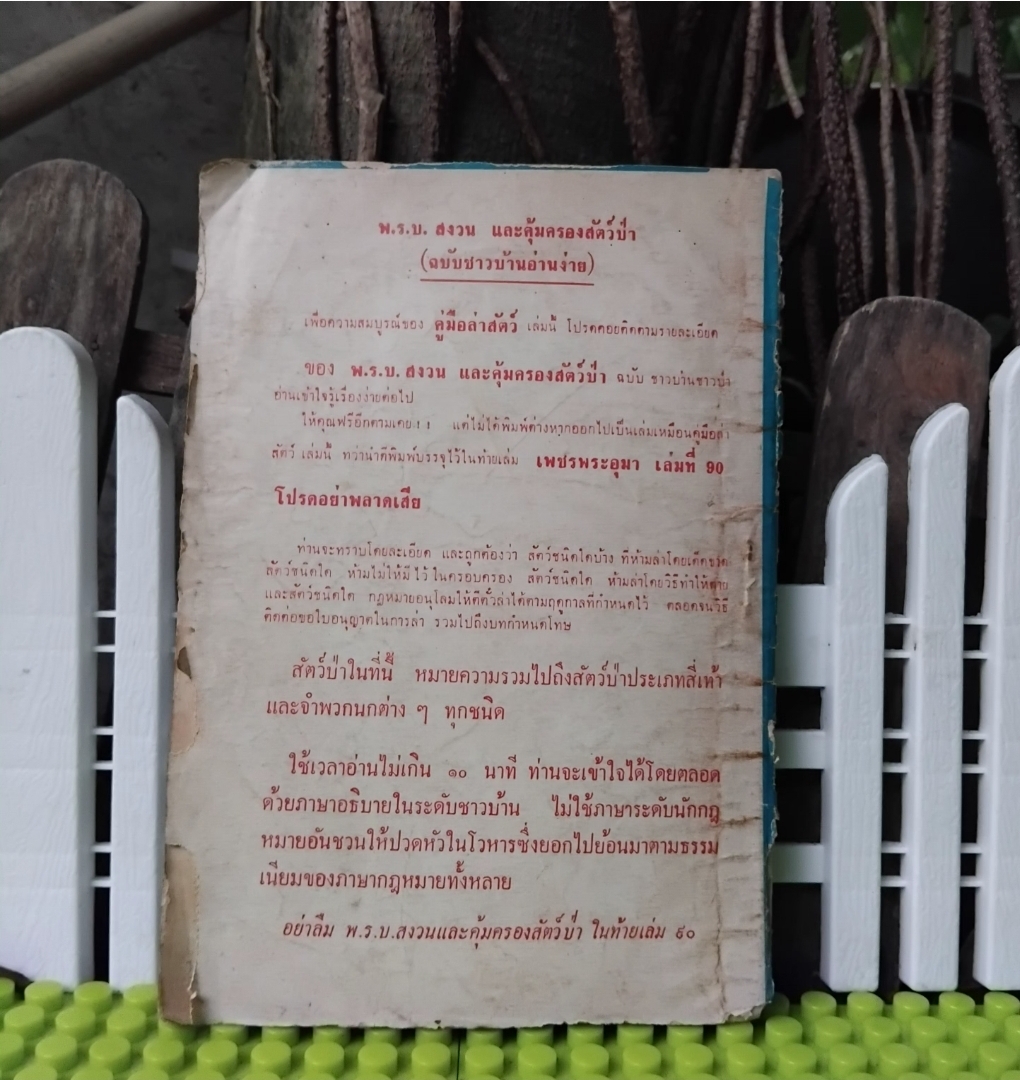 พ.ร.บ. สงวน และคุ้มครองสัตว์ป่า
(ฉบับชาวบ้านอ่านง่าย)
เพื่อความสมบูรณ์ของ คู่มือล่าสัตว์ เล่มนี้ โปรดคอยติดตามรายละเอียด
ของ พ.ร.บ. สงวน และคุ้มครองสัตว์ป่า ฉบับ ชาวบ้านชาวป่า
อ่านเข้าใจรู้เรื่องง่ายต่อไป
ให้คุณฟรีอีกตามเคย แต่ไม่ได้พิมพ์ต่างหากออกไปเป็นเล่มเหมือนคู่มือล่า
สัตว์ เล่มนี้ ทว่านำตีพิมพ์บรรจุไว้ในท้ายเล่ม เพชรพระอุมา เล่มที่ 90
โปรดอย่าพลาดเสีย
ท่านจะทราบโดยละเอียด และถูกต้องว่า สัตว์ชนิดใดบ้าง ที่ห้ามล่าโดยเด็ดขาด
สัตว์ชนิดใด ห้ามไม่ให้มีไว้ในครอบครอง สัตว์ชนิดใด ห้ามล่าโดยวิธีทำให้ตาย
และสัตว์ชนิดใด กฎหมายอนุโลมให้ตีตั๋วล่าได้ตามฤดูกาลที่กำหนดไว้ ตลอดจนวิธี
ติดต่อขอใบอนุญาตในการล่า รวมไปถึงบทกำหนดโทษ
สัตว์ป่าในที่นี้ หมายความรวมไปถึงสัตว์ป่าประเภทสี่เท้า
และจำพวกนกต่าง ๆ ทุกชนิด
ใช้เวลาอ่านไม่เกิน ๑๐ นาที ท่านจะเข้าใจได้โดยตลอด
ด้วยภาษาอธิบายในระดับชาวบ้าน ไม่ใช้ภาษาระดับนักกฎ
หมายอันชวนให้ปวดหัวในโวหารซึ่งยอกไปย้อนมาตามธรรม
เนียมของภาษากฎหมายทั้งหลาย
อย่าลืม พ.ร.บ.สงวนและคุ้มครองสัตว์ป่า ในท้ายเล่ม ๙๐